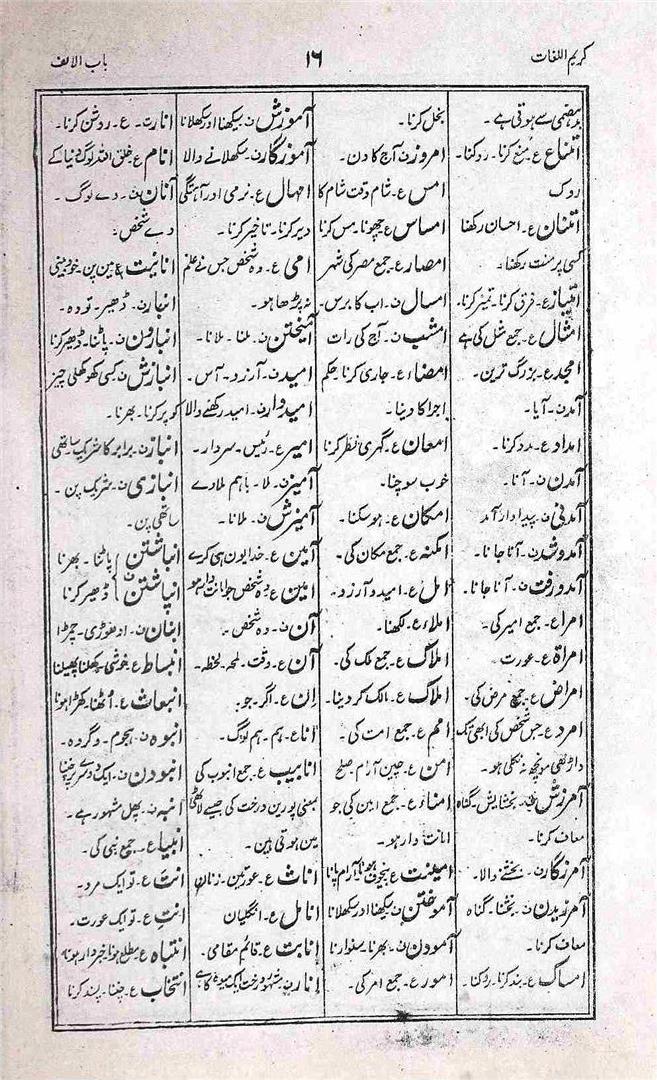 کریم اللغات
۱۶
باب الالف
بدہضمی سے ہوتی ہے۔
امتناع ع۔ منع کرنا۔ روکنا۔
روک
امتنان ع۔ احسان رکھنا
کسی پر منت رکھنا۔
امتیاز ع۔ فرق کرنا۔ تمیز کرنا۔
امثال ع۔ جمع مثل کی ہے
امجد ع۔ بزرگ ترین۔
آمد ن۔ آیا۔
امداد ع۔ مدد کرنا۔
آمدن ن۔ آنا۔
آمدنی ن۔ پیداوار آمد
آمدوشد ن۔ آنا جانا۔
آمدورفت ن۔ آنا جانا۔
امرا ع۔ جمع امیر کی۔
امراۃ ع۔ عورت
امراض ع۔ جمع مرض کی۔
امرد ع۔ جس شخص کی ابھی تک
داڑھی مونچھ نہ نکلی ہو۔
آمرزش ن۔ بخشایش۔ گناہ
معاف کرنا۔
آمرزگار ن۔ بخشنے والا۔
آمرزیدن ن۔ بخشنا۔ گناہ
معاف کرنا۔
امساک ع۔ بند کرنا۔ روکنا۔
بخل کرنا۔
امروز ن۔ آج کا دن۔
امس ع۔ شام وقت شام کا
امساس ع۔ چھونا۔ مس کرنا
امصار ع۔ جمع مصر کی شہر
امسال ن۔ اب کا برس۔
امشب ن۔ آج کی رات
امضاء ع۔ جاری کرنا۔ حکم
اجرا کا دینا۔
امعان ع۔ گہری نظر کرنا
خوب سوچنا۔
امکان ع۔ ہو سکنا۔
امکنہ ع۔ جمع مکان کی۔
امل ع۔ امید و آرزو۔
املاء ع۔ لکھنا۔
املاک ع۔ جمع ملک کی۔
املاک ع۔ مالک کر دینا۔
امم ع۔ جمع امت کی۔
امن ع۔ چین آرام صلح
امناء ع۔ جمع امین کی جو
امانت دار ہو۔
امینت ع۔ بیخوف ہونا آرام پانا
آموختن ن۔ سیکھنا اور سکھلانا
آمودن ن۔ بھرنا۔ سنوارنا
امور ع۔ جمع امر کی۔
آموزش ن۔ سیکھنا اور سکھلانا
آموزگار ن۔ سکھلانے والا
امہال ع۔ نرمی اور آہستگی
دیر کرنا۔ تاخیر کرنا۔
امی ع۔ وہ شخص جس نے علم
نہ پڑھا ہو۔
آمیختن ن۔ ملنا۔ ملانا۔
امید ن۔ آرزو۔ آس۔
امیدوار ن۔ امید رکھنے والا
امیر ع۔ رئیس۔ سردار۔
آمیز ن۔ ملا۔ باہم ملاوے
آمیزش ن۔ ملانا۔
آمین ع۔ خدا یون ہی کرے
امین ع۔ وہ شخص جو امانت دار ہو
آن ن۔ وہ شخص۔
آن ع۔ وقت۔ لمحہ۔ لحظہ۔
ان ع۔ اگر۔ جو۔
انا ع۔ ہم۔ ہم لوگ۔
انابیب ع۔ جمع انبوب کی
بمعنی پورین درخت کی جیسے لاٹھی
مین ہوتی ہین۔
اناث ع۔ عورتین۔ زنان
انامل ع۔ انگلیان
انابت ع۔ قائم مقامی۔
انار ن۔ مشہور درخت ایک میوہ کا ہے
انارت۔ ع۔ روشن کرنا۔
انام ع۔ خلق اللہ لوگ دنیا کے
آنان ن۔ وے لوگ۔
وے شخص۔
انانیت ع۔ مین پن۔ خودبینی
انبار ن۔ ڈھیر۔ تودہ۔
انباردن ن۔ پاٹنا۔ ڈھیر کرنا
انبازش ن۔ کسی کھوکھلی چیز
کو پر کرنا۔ بھرنا۔
انباز ن۔ برابر کا شریک ساتھی
انبازی ن۔ شریک پن۔
ساتھی پن۔
انباشتن } پاٹنا۔ بھرنا
انپاشتن ن } ڈھیر کرنا
انبان ن۔ ادھوڑی۔ چمڑا
انبساط ع۔ خوشی پھلنا پھیلنا
انبعاث ع۔ اٹھنا۔ کھڑا ہونا
انبوہ ن۔ ہجوم۔ و گروہ۔
انبودن ن۔ ایک دوسرے پر چننا
انبہ ن۔ پھل مشہور ہے۔
انبیاء ع۔ جمع نبی کی۔
انت ع۔ تو ایک مرد۔
انت ع۔ تو ایک عورت۔
انتباہ ع۔ مطلع ہونا۔ خبردار ہونا
انتخاب ع۔ چننا۔ پسند کرنا